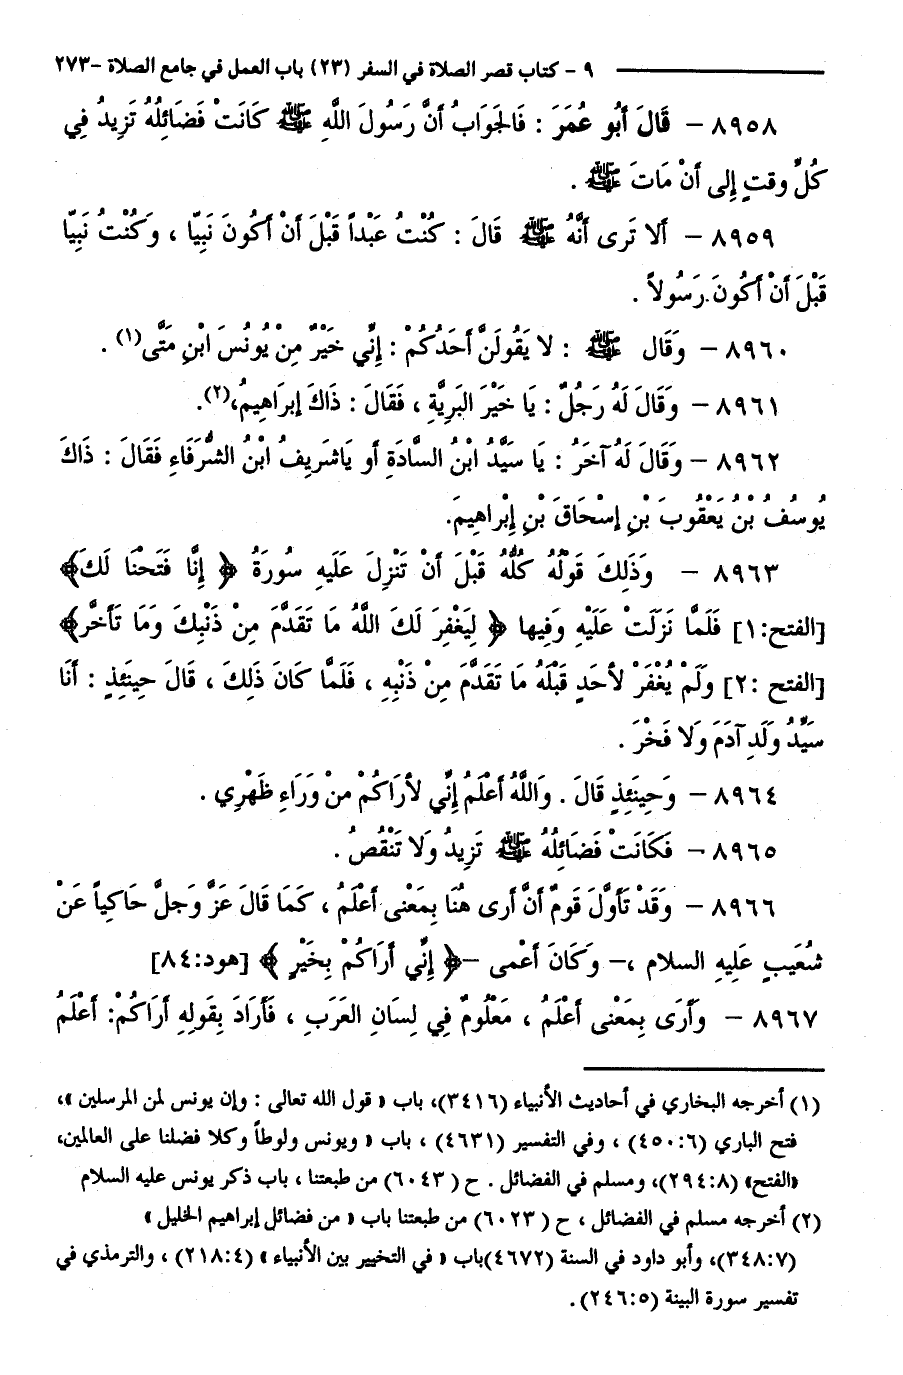 ٩ - كتاب قصر الصلاة في السفر (٢٣) باب العمل في جامع الصلاة -٢٧٣
٨٩٥٨ - قَالَ أَبُو عُمَرَ : فَالجَوَابُ أَنَّ رَسُولَ اللَّهِ ﷺ كَانَتْ فَضَائِلُهُ تَزِيدُ فِي
كُلِّ وقتٍ إِلى أَنْ مَاتَ ﷺ .
٨٩٥٩ - أَلا تَرى أَنَّهُ ﷺ قَالَ : كُنْتُ عَبْداً قَبْلَ أَنْ أَكُونَ نَبِيّا ، وَكُنْتُ نَبِيّا
قَبْلَ أَنْ أَكُونَ رَسُولاً .
٨٩٦٠ - وَقَال ﷺ : لا يَقُولَنَّ أَحَدُكُمْ : إِنِّي خَيْرٌ مِنْ يُونُسَ ابْنِ مَتَّى(١) .
٨٩٦١ - وَقَالَ لَهُ رَجُلٌ : يَا خَيْرَ البَرِيَّةِ ، فَقَالَ : ذَاكَ إبرَاهِيمُ،(٢).
٨٩٦٢ - وَقَالَ لَهُ آخَرُ : يَا سَيِّدُ ابْنُ السَّادَةِ أو يَاشَرِيفُ ابْنُ الشُّرَفَاءِ فَقَالَ : ذَاكَ
يُوسُفُ بْنُ يَعْقُوبَ بْنِ إسْحَاقَ بْنِ إِبْراهِيمَ.
٨٩٦٣ - وَذَلِكَ قَوْلُهُ كُلُّهُ قَبْلَ أَنْ تَنْزِلَ عَلَيهِ سُورَةُ ﴿ إِنَّا فَتَحْنَا لَكَ﴾
[الفتح:١] فَلَمَّا نَزَلَتْ عَلَيْهِ وَفِيها ﴿ لِيَغْفِرَ لَكَ اللَّهُ مَا تَقَدَّمَ مِنْ ذَنْبِكَ وَمَا تَأَخَّر﴾
[الفتح :٢] وَلَمْ يُغْفَرْ لأحَدٍ قَبْلَهُ مَا تَقَدَّمَ مِنْ ذَنْبِهِ ، فَلَمَّا كَانَ ذَلِكَ ، قَالَ حِينَئِذٍ : أَنَا
سَيِّدُ وَلَدِ آدَمَ وَلا فَخْرَ .
٨٩٦٤ - وَحِينَئِذٍ قَالَ . وَاللَّهُ أَعْلَمُ إِنِّي لأرَاكُمْ منْ وَرَاءِ ظَهْرِي .
٨٩٦٥ - فَكَانَتْ فَضَائِلُهُ ﷺ تَزِيدُ وَلَا تَنْقُصُ .
٨٩٦٦ - وَقَدْ تَأَوَّلَ قَومٌ أَنَّ أَرى هُنَا بِمَعْنى أَعْلَمُ ، كَمَا قَالَ عَزَّ وَجلَّ حَاكِياً عَنْ
شُعَيبٍ عَلَيهِ السلام ،- وَكَانَ أَعْمى -﴿ إِنِّي أَرَاكُمْ بِخَيْرٍ ﴾ [هود:٨٤]
٨٩٦٧ - وَأَرَى بِمَعْنى أَعْلَمُ ، مَعْلُومٌ فِي لِسَانِ العَرَبِ ، فَأَرَادَ بِقَولِهِ أَرَاكُمْ: أَعْلَمُ
(١) أخرجه البخاري في أحاديث الأنبياء (٣٤١٦)، باب « قول الله تعالى : وإن يونس لمن المرسلين »،
فتح الباري (٤٥٠:٦) ، وفي التفسير (٤٦٣١) ، باب « ويونس ولوطاً وكلا فضلنا على العالمين،
«الفتح» (٢٩٤:٨)، ومسلم في الفضائل . ح ( ٦٠٤٣) من طبعتنا ، باب ذكر يونس عليه السلام
(٢) أخرجه مسلم في الفضائل ، ح ( ٦٠٢٣) من طبعتنا باب « من فضائل إبراهيم الخليل »
(٣٤٨:٧)، وأبو داود في السنة (٤٦٧٢)باب « في التخيير بين الأنبياء » (٢١٨:٤) ، والترمذي في
تفسير سورة البينة (٢٤٦:٥).